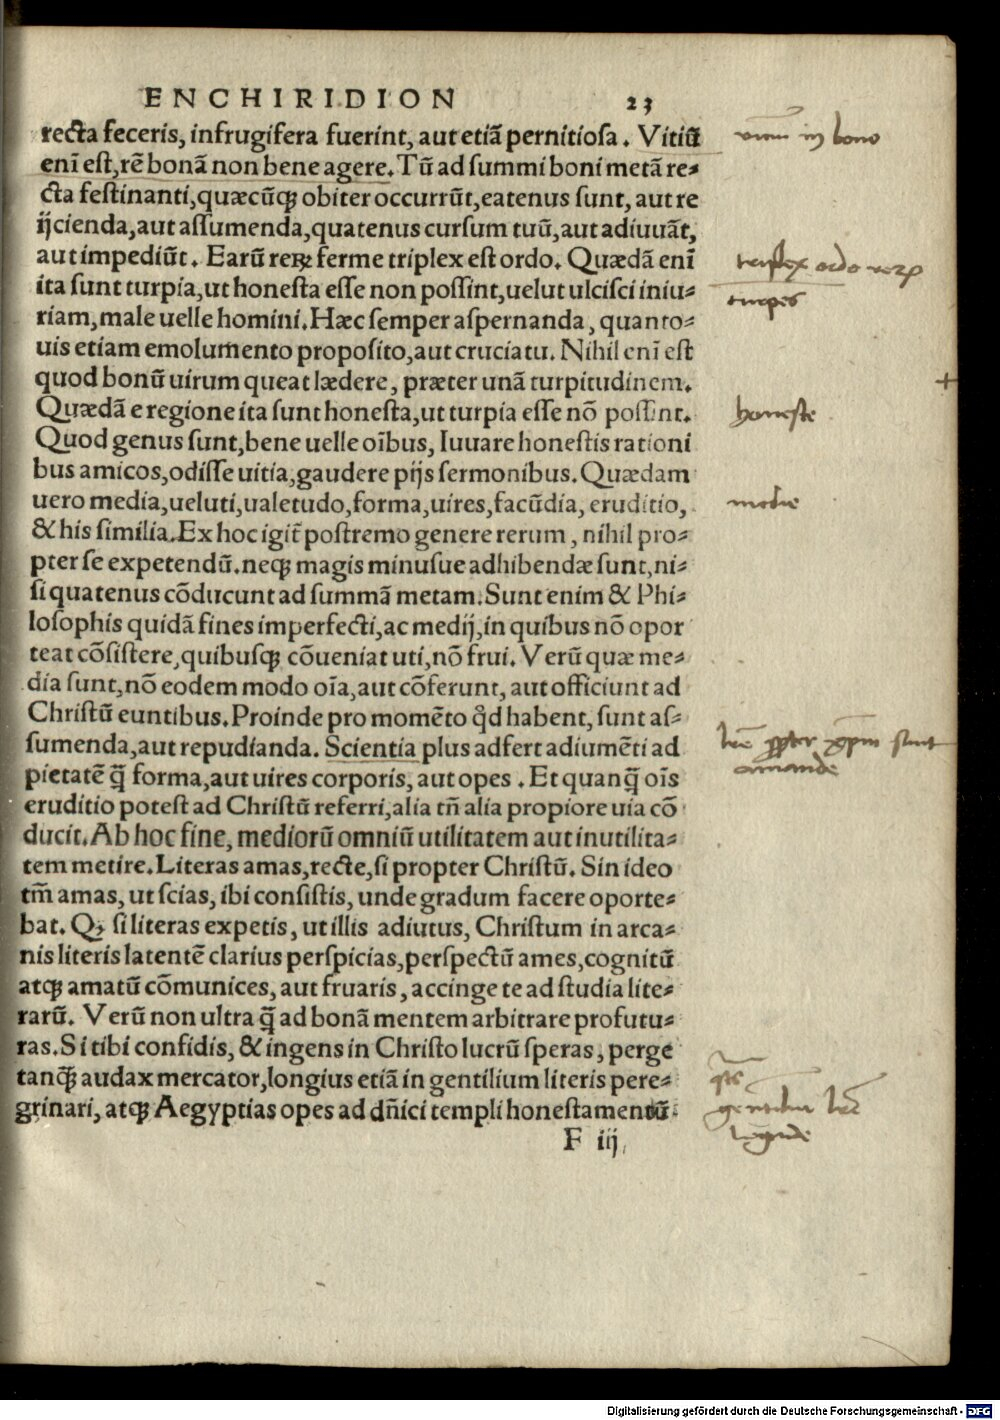 ENCHIRIDION 23
recta feceris, infrugifera fuerint, aut etiã pernitiosa. Vitiũ
enĩ est, rẽ bonã non bene agere. Tũ ad summi boni metã re⸗
cta festinanti, quæcũꝗ obiter occurrũt, eatenus sunt, aut re
ijcienda, aut assumenda, quatenus cursum tuũ, aut adiuuãt,
aut impediũt. Earũ reꝝ ferme triplex est ordo. Quædã enĩ
ita sunt turpia, ut honesta esse non possint, uelut ulcisci iniu⸗
riam, male uelle homini. Hæc semper aspernanda, quanto⸗
uis etiam emolumento proposito, aut cruciatu. Nihil enĩ est
quod bonũ uirum queat lædere, præter unã turpitudinem.
Quædã e regione ita sunt honesta, ut turpia esse nõ possint.
Quod genus sunt, bene uelle oĩbus, Iuuare honestis rationi
bus amicos, odisse uitia, gaudere pijs sermonibus. Quædam
uero media, ueluti, ualetudo, forma, uires, facũdia, eruditio,
& his similia. Ex hoc igit̃ postremo genere rerum, nihil pro⸗
pter se expetendũ. neꝗ magis minusue adhibendæ sunt, ni⸗
si quatenus cõducunt ad summã metam. Sunt enim & Phi⸗
losophis quidã fines imperfecti, ac medij, in quibus nõ opor
teat cõsistere, quibusꝗ cõueniat uti, nõ frui. Verũ quæ me⸗
dia sunt, nõ eodem modo oĩa, aut cõferunt, aut officiunt ad
Christũ euntibus. Proinde pro momẽto qd̉ habent, sunt as⸗
sumenda, aut repudianda. Scientia plus adfert adiumẽti ad
pietatẽ q̃ forma, aut uires corporis, aut opes. Et quanq̃ oĩs
eruditio potest ad Christũ referri, alia tñ alia propiore uia cõ
ducit. Ab hoc fine, mediorũ omniũ utilitatem aut inutilita⸗
tem metire. Literas amas, recte, si propter Christũ. Sin ideo
tm̃ amas, ut scias, ibi consistis, unde gradum facere oporte⸗
bat. Qꝫ si literas expetis, ut illis adiutus, Christum in arca⸗
nis literis latentẽ clarius perspicias, perspectũ ames, cognitũ
atꝗ amatũ cõmunices, aut fruaris, accinge te ad studia lite⸗
rarũ. Verũ non ultra q̃ ad bonã mentem arbitrare profutu⸗
ras. Si tibi confidis, & ingens in Christo lucrũ speras, perge
tanq̃ audax mercator, longius etiã in gentilium literis pere⸗
grinari, atꝗ Aegyptias opes ad dñici templi honestamentũ
F iij
in bono
triplex ordo
turpes
honeste
medie
sunt
amande
Digitalisierung gefördert durch die Deutsche Forschungsgemeinschaft - DFG